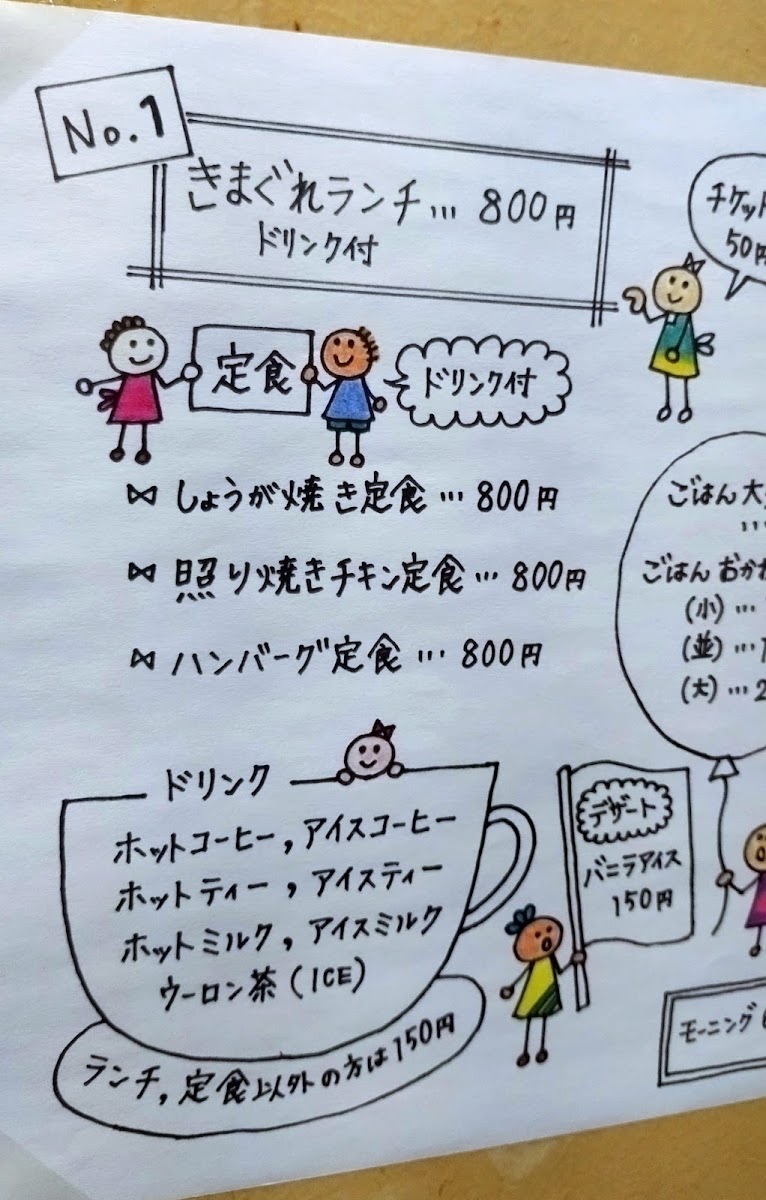 No.1
きまぐれランチ… 800円
ドリンク付
チケット
50円
定食
ドリンク付
しょうが焼き定食… 800円
照り焼きチキン定食… 800円
ハンバーグ定食… 800円
ごはん大
…
ごはん おかわ
(小)…
(並)…1
(大)…2
ドリンク
ホットコーヒー, アイスコーヒー
ホットティー, アイスティー
ホットミルク, アイスミルク
ウーロン茶(ICE)
ランチ, 定食以外の方は150円
デザート
バニラアイス
150円
モーニング